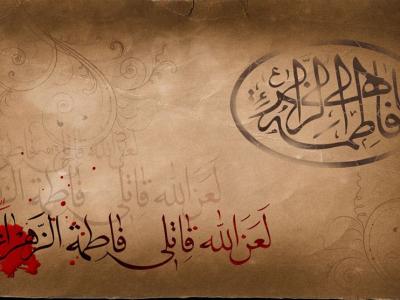 فاطمة الزهراء
لعن الله قاتلي فاطمة
لَعَنَ الله قاتِلي فاطمة الزَّهراء